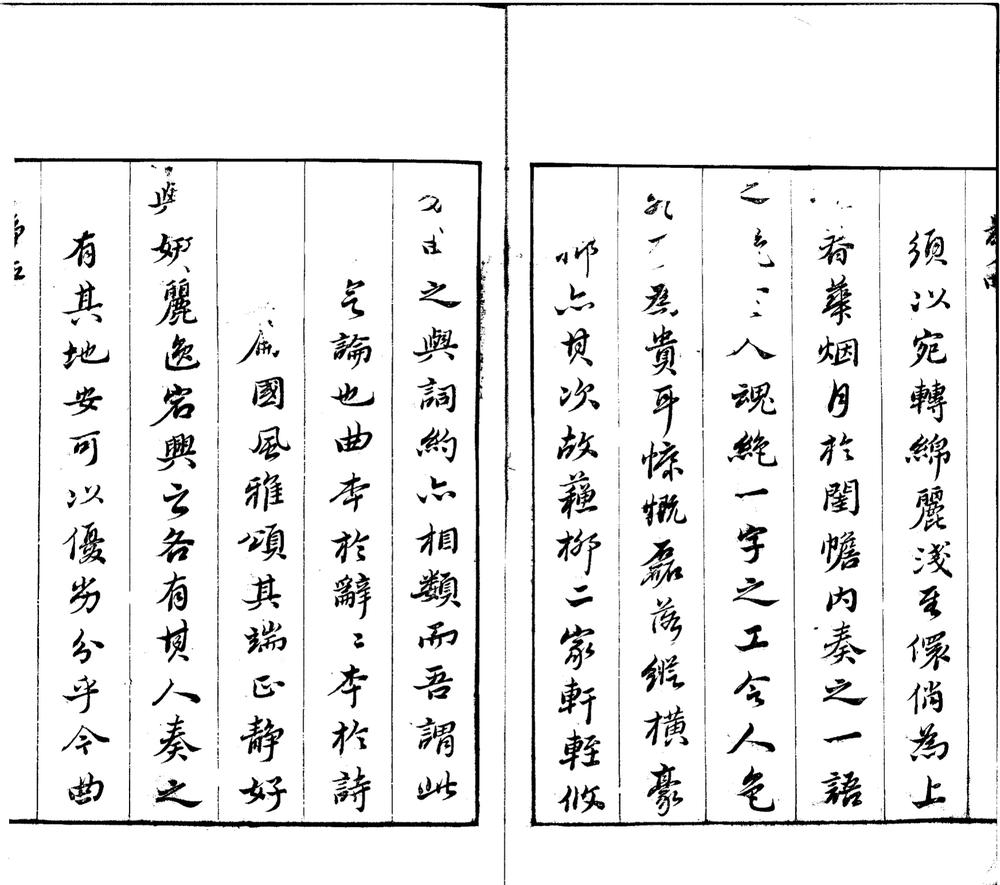 須以宛轉綿麗淺至儇俏爲上
香華烟月於閨幨内奏之一語
之
人魂絶一字之工令人色
爲貴耳慷慨磊落縱橫豪
亦其次故蘇柳二家軒輊攸
之與詞約亦相類而吾謂此
言論也曲本於辭〻本於詩
國風雅頌其端正静好
與妍麗逸宕興之各有其人奏之
有其地安可以優劣分乎今曲